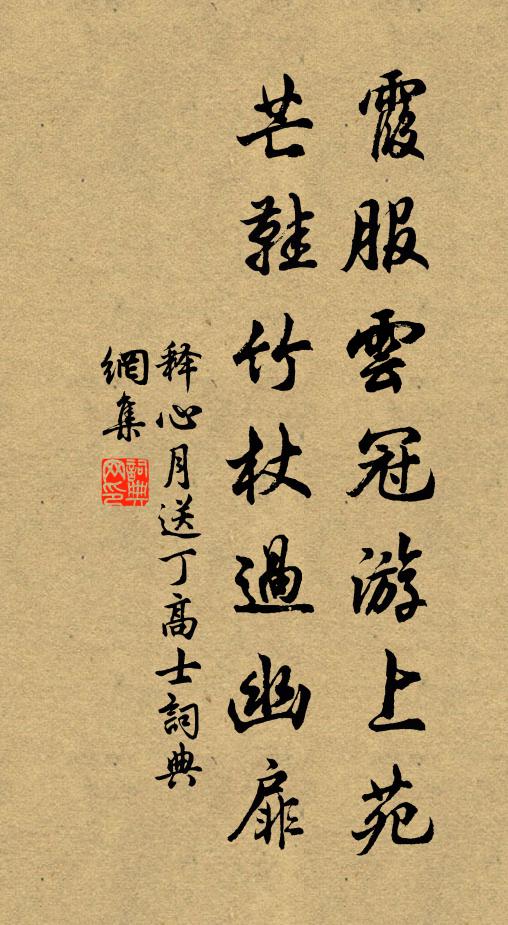 霞服雲冠游上苑
芒鞋竹杖過幽扉
释心月送丁高士詞典
網集
詞典网印